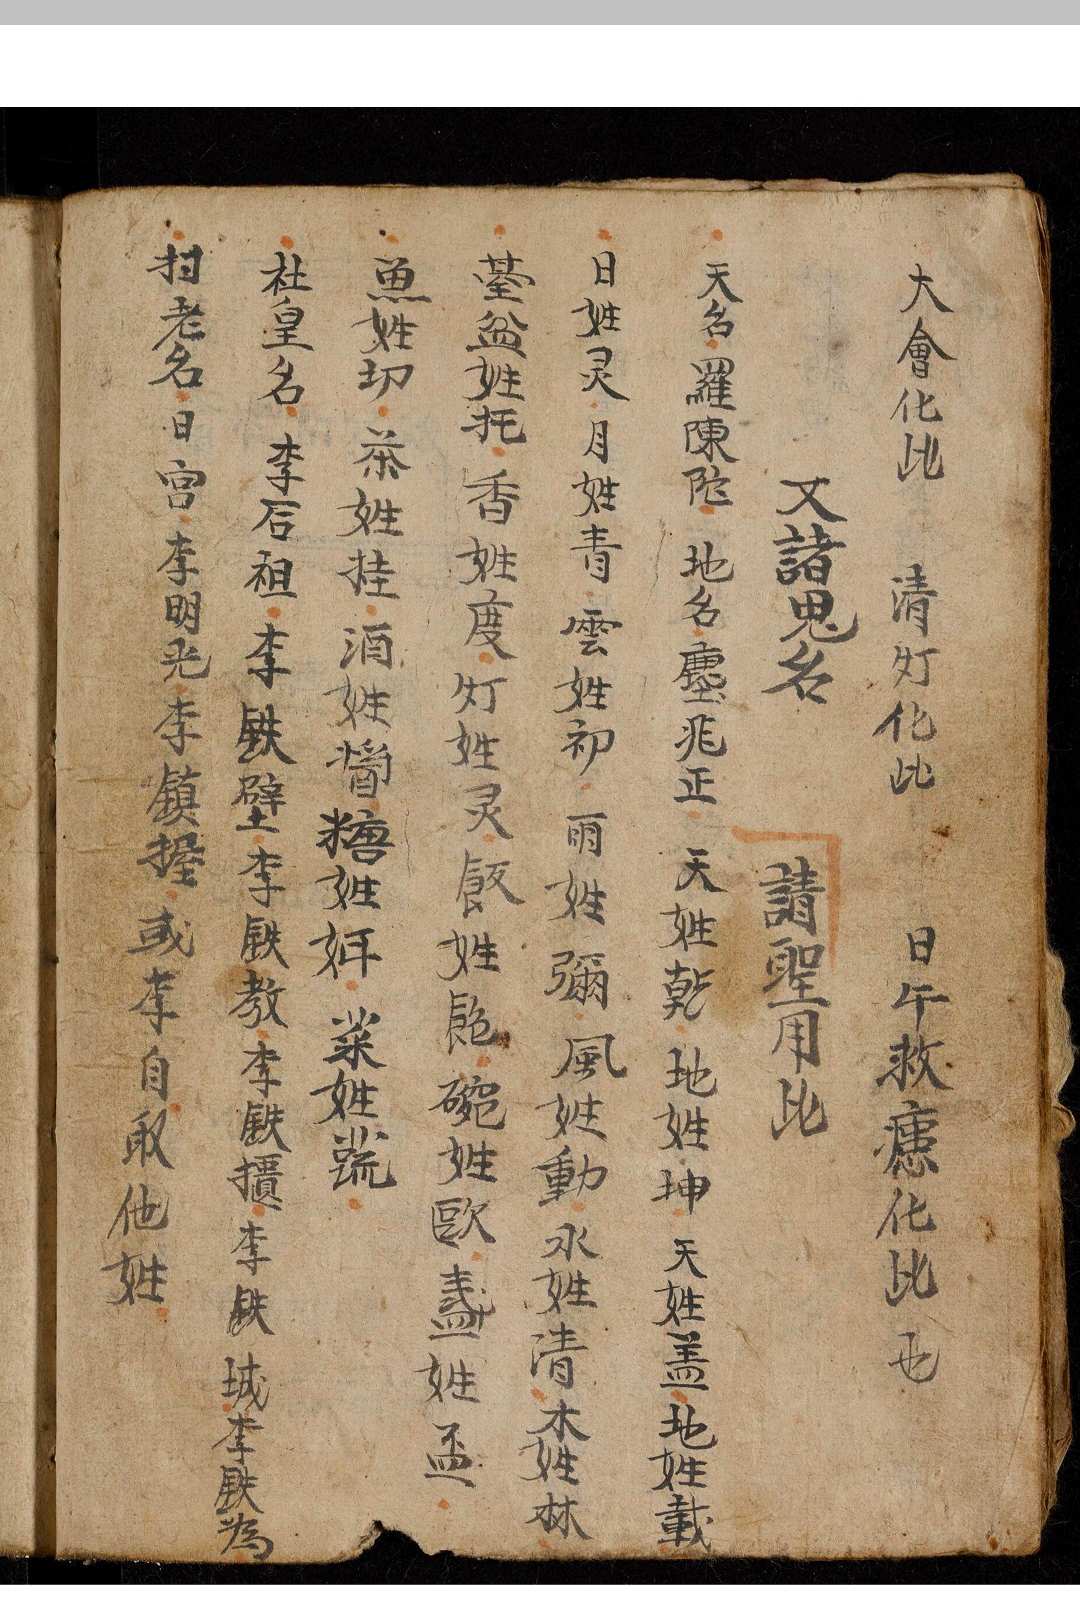 大會化比 清灯化比 日午救瘧化比 也
又諸鬼名 請聖用比
天名羅陳陀 地名塵兆正 天姓乾 地姓坤 天姓盖 地姓載
日姓灵 月姓青 雲姓初 雨姓彌 風姓動 水姓清 木姓林
盆姓托 香姓度 灯姓灵 飯姓 碗姓歐 盞姓盃
魚姓切 茶姓挂 酒姓 糖姓 菜姓
社皇名 李后祖 李鉄壁 李鉄教 李鉄 李鉄城 李鉄為
老名 日宮 李明光 李鎮握 或李自取他姓